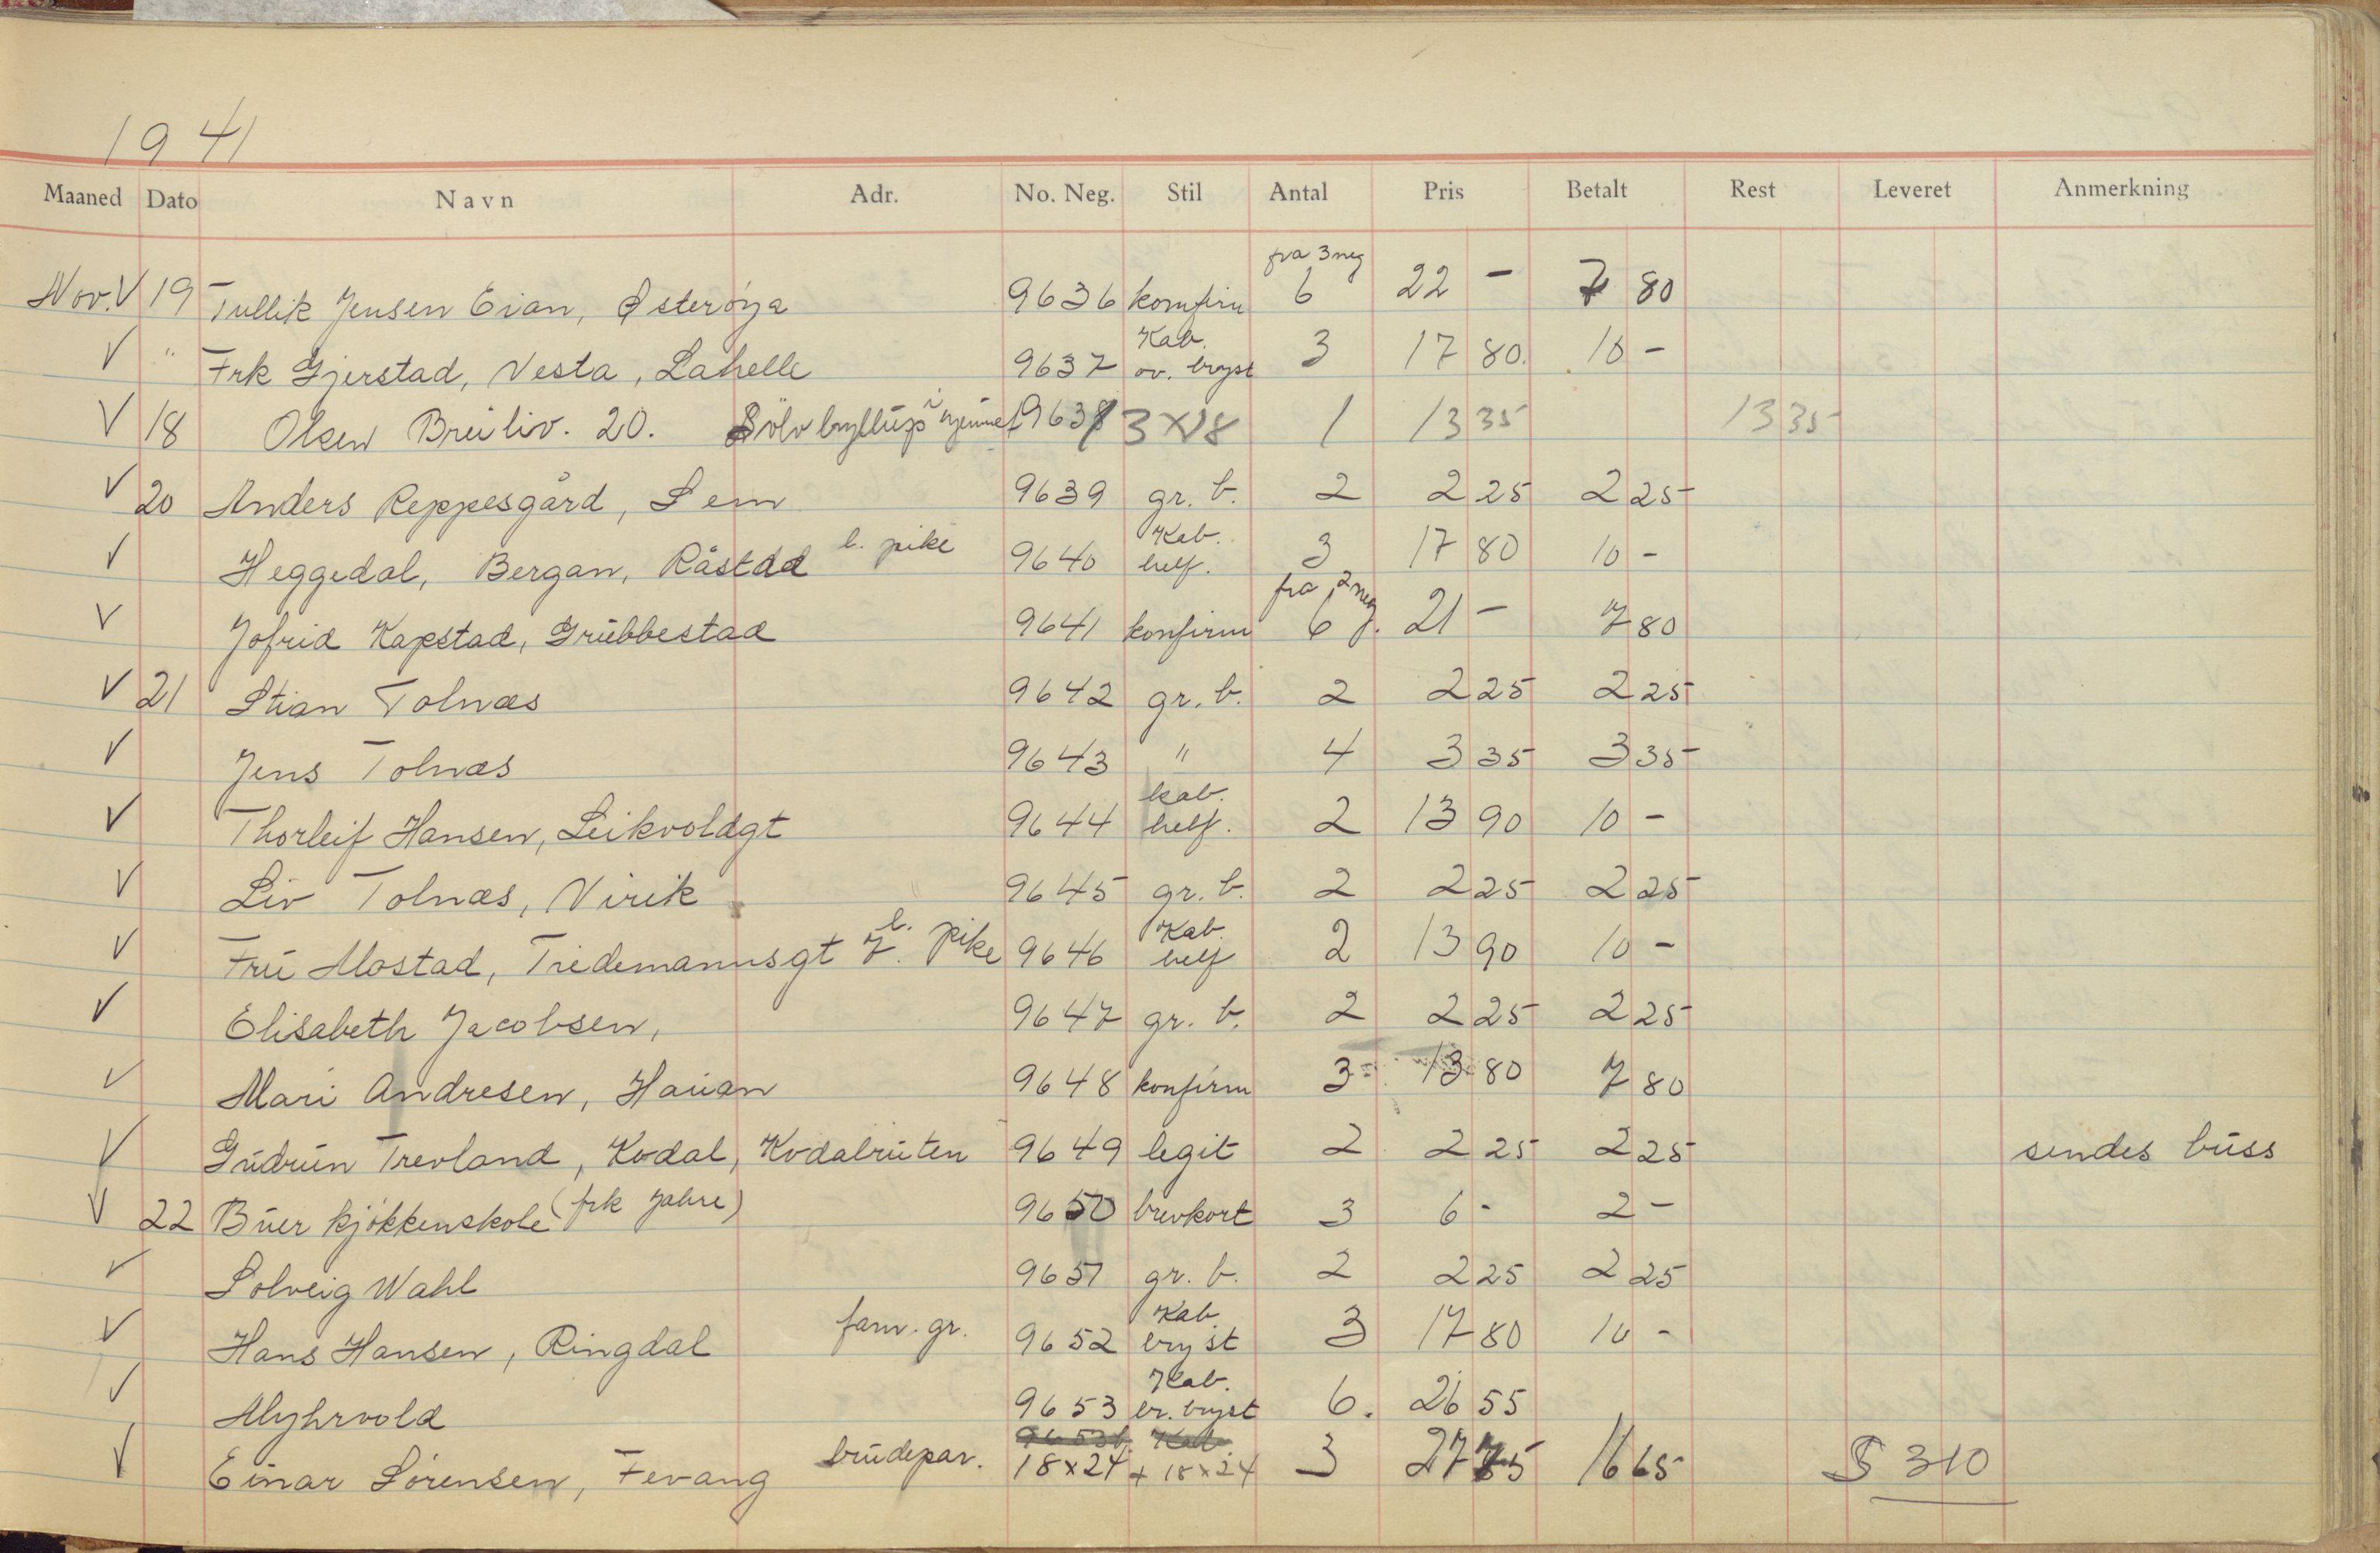 1941
Maaned Dato Navn Adr. No. Neg. Stil Antal Pris Betalt Rest Leveret Anmerkning
Nov. V 19 Tullik Jensen Eian, Østerøya 9636 komfirm fra 3 neg 6 22 - 7 80
V " Frk Gjerstad, Vesta, Lahelle 9637 Kab. ov. bryst 3 17 80. 10 -
V 18 Olsen Breiliv. 20. Sölvbryllüp i 9638 3 X 18 1 13 35 13 35
V 20 Anders Reppesgård, Sem 9639 gr. b. 2 2 25 2 25
V Heggedal, Bergan, Råstad l. pike 9640 Kab. helf. 3 17 80 10 -
V Jofrid Kapstad, Grübbestad 9641 konfirm fra 2 neg. 6 21 - 7 80
V 21 Stian Tolnæs 9642 gr. b. 2 2 25 2 25
V Jens Tolnæs 9643 " 4 3 35 3 35
V Thorleif Hansen, Leikvoldgt 9644 kab. helf. 2 13 90 10 -
V Liv Tolnæs, Virik 9645 gr. b. 2 2 25 2 25
V Frü Mostad, Tiedemannsgt 7. l. pike 9646 Kab. helf 2 13 90 10 -
V Elisabeth Jacobsen, 9647 gr. b. 2 2 25 2 25
V Mari Andresen, Haüan 9648 konfirm 3 13 80 7 80
V Güdrün Trevland, Kodal, Kodalrüten 9649 legit 2 2 25 2 25 sendes büss
V 22 Büer kjøkkenskole (frk Jahre) 9650 brevkort 3 6 - 2 -
V Solveig Wahl 9651 gr. b. 2 2 25 2 25
V Hans Hansen, Ringdal fam. gr. 9652 Kab bryst 3 17 80 10 -
V Myhrvold 9653 Kab. br. bryst 6. 26 55
V Einar Sörensen, Fevang brüdepar. 9653b Kab. 18x24 + 18x24 3 27 75 16 65 S 310